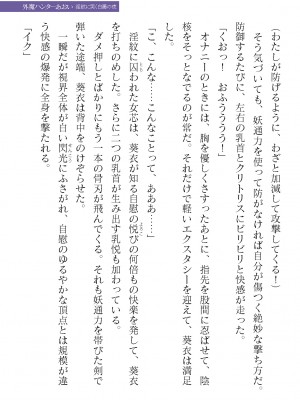 外魔ハンターあおい
(わたしが防げるように、わざと加減して攻撃してくる!)
そう気づいても、妖通力を使って防がなければ自分が傷つく絶妙な撃ち方だ。
防御するたびに、左右の乳首とクリトリスにビリビリと快感が走った。
「くおっ! おふうううう!」
オナニーのときには、胸を優しくさすったあとに、指先を股間に忍ばせて、陰
核をそっとなでるのが常だ。それだけで軽いエクスタシーを迎えて、葵衣は満足
していた。
「こ、こんな……こんなことって、あああ……」
淫紋に囚われた女芯は、葵衣が知る自慰の悦びの何倍もの快楽を発して、葵衣
を打ちのめした。さらに二つの乳首が生み出す乳悦も加わっている。
ダメ押しとばかりにもう一本の骨刃が飛んでくる。それも妖通力を帯びた剣で
弾いた途端、葵衣は背中をのけぞらせた。
一瞬だが視界全体が白い閃光にふさがれ、自慰のゆるやかな頂点とは規模が違
う快感の爆発に全身を撃たれる。
「イク」